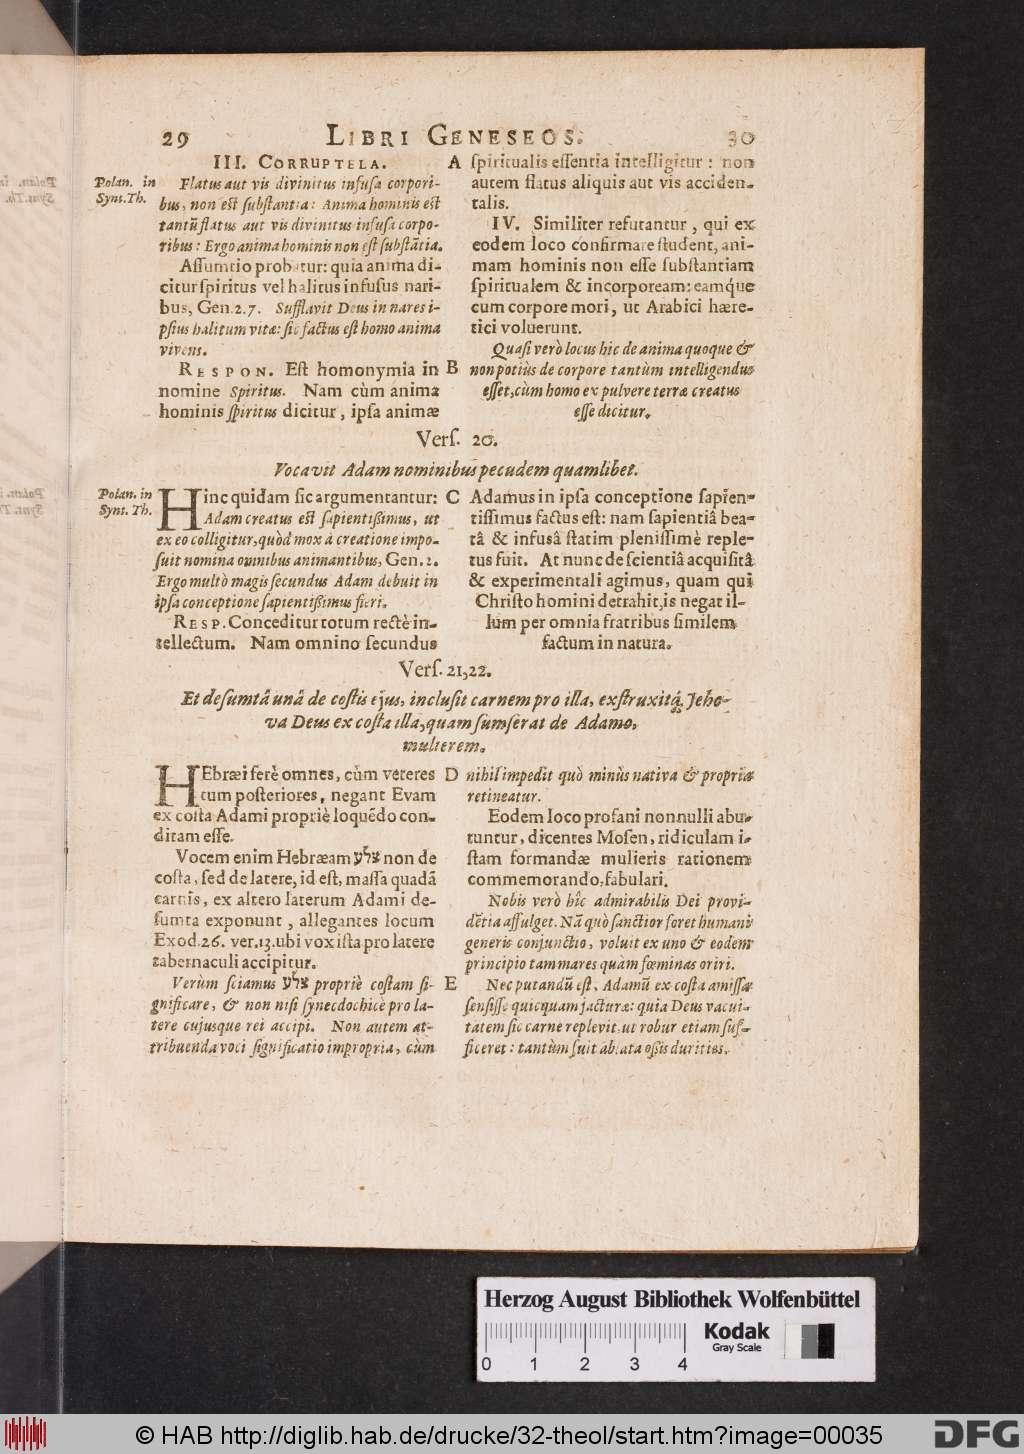 29 LIBRI GENESEOS. 30
III. CORRUPTELA.
Polan. in
Synt. Th.
Flatus aut vis divinitus infusa corpori-
bus, non est substantia: Anima hominis est
tantũ flatus aut vis divinitus infusa corpo-
ribus: Ergo anima hominis non est substãtia.
Assumtio probatur: quia anima di-
citur spiritus vel halitus infusus nari-
bus, Gen. 2. 7. Sufflavit Deus in nares i-
psius halitum vitæ: sic factus est homo anima
vivens.
RESPON. Est homonymia in
nomine Spiritus. Nam cùm anima
hominis spiritus dicitur, ipsa animæ
A spiritualis essentia intelligitur: non
autem flatus aliquis aut vis acciden-
talis.
IV. Similiter refutantur, qui ex
eodem loco confirmare student, ani-
mam hominis non esse substantiam
spiritualem & incorpoream: eamq́ue
cum corpore mori, ut Arabici hære-
tici voluerunt.
Quasi verò locus hic de anima quoque &
B non potiùs de corpore tantùm intelligendus
esset, cùm homo ex pulvere terræ creatus
esse dicitur.
Vers. 20.
Vocavit Adam nominibus pecudem quamlibet.
Polan. in
Synt. Th.
Hinc quidam sic argumentantur:
Adam creatus est sapientissimus, ut
ex eo colligitur, quòd mox à creatione impo-
suit nomina omnibus animantibus, Gen. 2.
Ergo multò magis secundus Adam debuit in
ipsa conceptione sapientissimus fieri.
RESP. Conceditur totum rectè in-
tellectum. Nam omnino secundus
C Adamus in ipsa conceptione sapien-
tissimus factus est: nam sapientiâ bea-
tâ & infusâ statim plenissimè reple-
tus fuit. At nunc de scientiâ acquisitâ
& experimentali agimus, quam qui
Christo homini detrahit, is negat il-
lum per omnia fratribus similem
factum in natura.
Vers. 21, 22.
Et desumtâ unâ de costis ejus, inclusit carnem pro illa, exstruxitq́; Jeho-
va Deus ex costa illa, quam sumserat de Adamo,
mulierem.
HEbræi ferè omnes, cùm veteres
tum posteriores, negant Evam
ex costa Adami propriè loquẽdo con-
ditam esse.
Vocem enim Hebræam צלע non de
costa, sed de latere, id est, massa quadã
carnis, ex altero laterum Adami de-
sumta exponunt, allegantes locum
Exod. 26. ver. 13. ubi vox ista pro latere
tabernaculi accipitur.
Verùm sciamus צלע propriè costam si-
gnificare, & non nisi synecdochicè pro la-
tere cujusque rei accipi. Non autem at-
tribuenda voci significatio impropria, cùm
D nihil impedit quò minùs nativa & propria
retineatur.
Eodem loco profani nonnulli abu-
tuntur, dicentes Mosen, ridiculam i-
stam formandæ mulieris rationem
commemorando, fabulari.
Nobis verò hîc admirabilis Dei provi-
dẽtia affulget. Nã quò sanctior foret humani
generis conjunctio, voluit ex uno & eodem
principio tam mares quàm fœminas oriri.
E Nec putandũ est, Adamũ ex costa amissa
sensisse quicquam jacturæ: quia Deus vacui-
tatem sic carne replevit, ut robur etiam suf-
ficeret: tantùm fuit ablata ossis durities.
Herzog August Bibliothek Wolfenbüttel
Kodak
Gray Scale
0 1 2 3 4
© HAB http://diglib.hab.de/drucke/32-theol/start.htm?image=00035
DFG